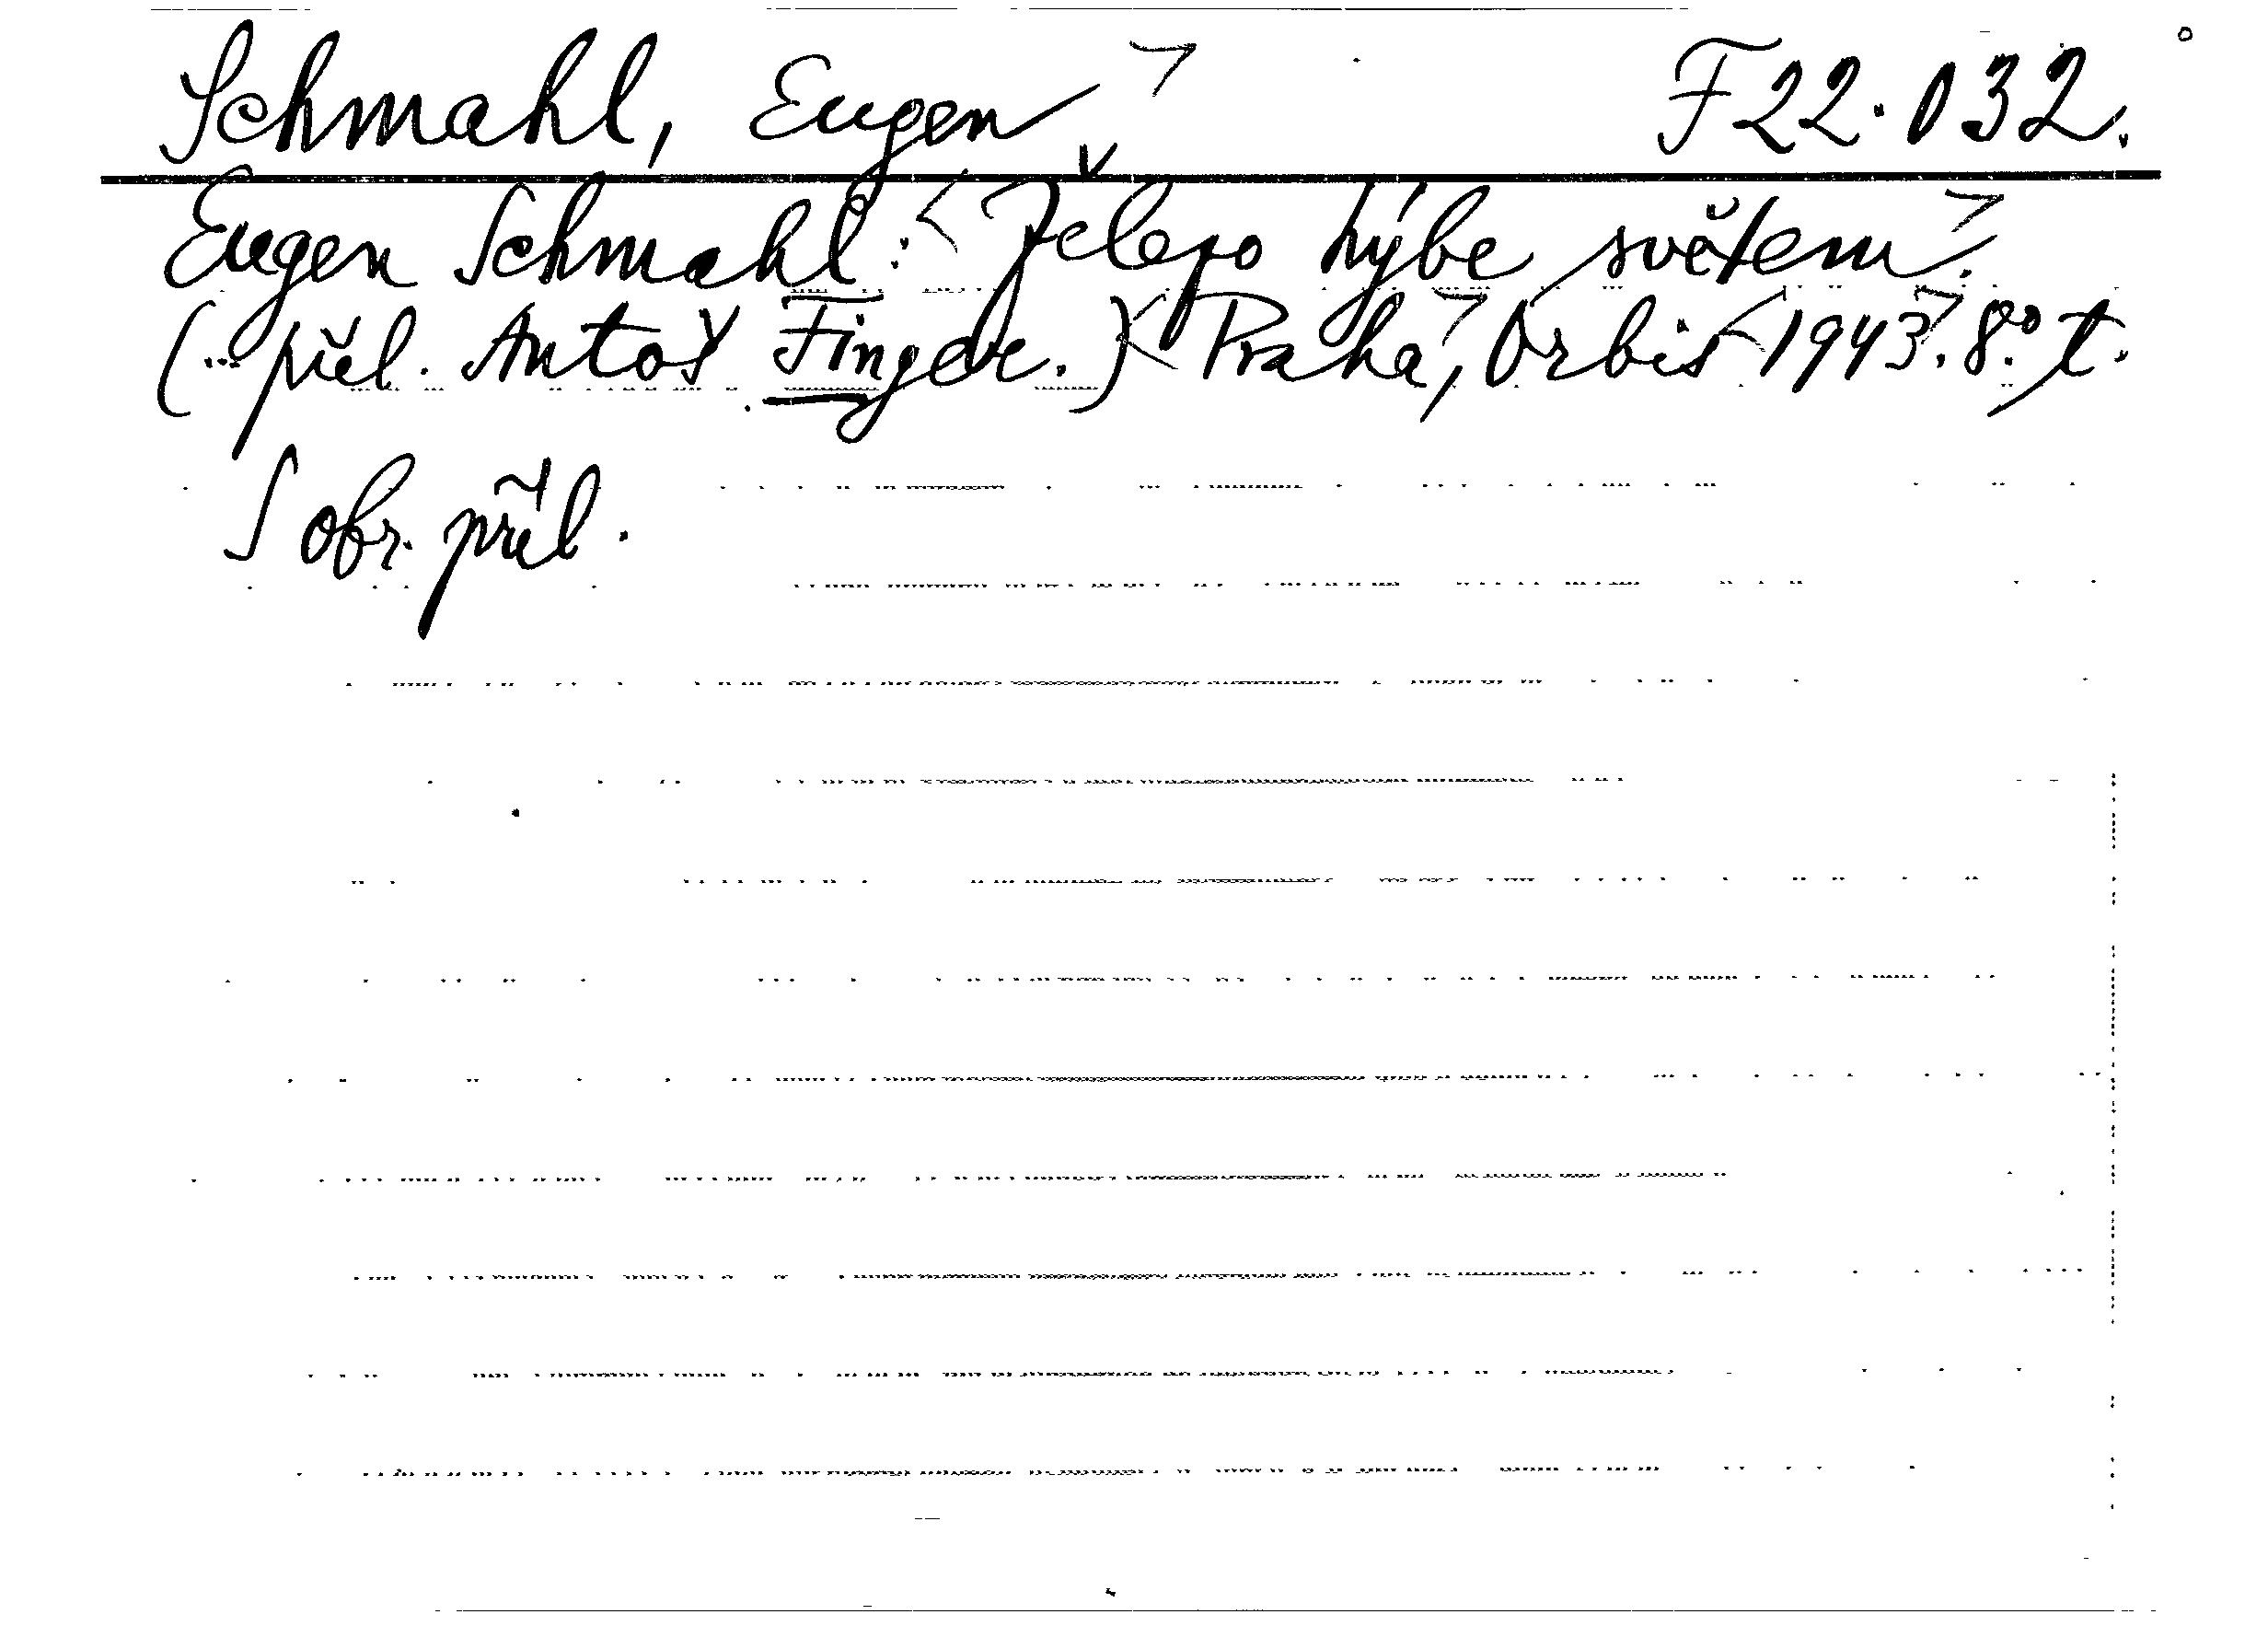 Schmahl, Eugen F 22.032.
Eugen Schmahl: Železo hýbe světem.
(... přel. Antoš Finger.) Praha, Orbis 1943. 8.° t.
S obr. příl.